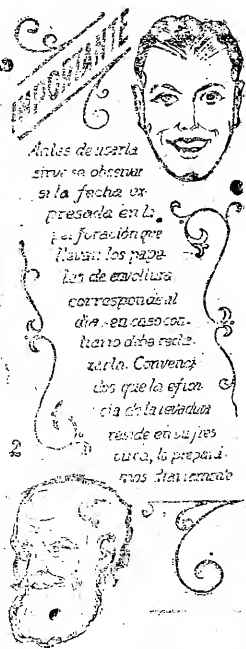 IMPORTANTE
Antes de usarla
sirvase observar
si la fecha ex-
presada en la
perforación que
llevan los pape-
les de envoltura
corresponde al
dia - en caso con-
trario debe recha-
zarla. Convenci-
dos que la efica-
cia de la levadura
reside en su fres-
cura, la prepara-
mos diariamente